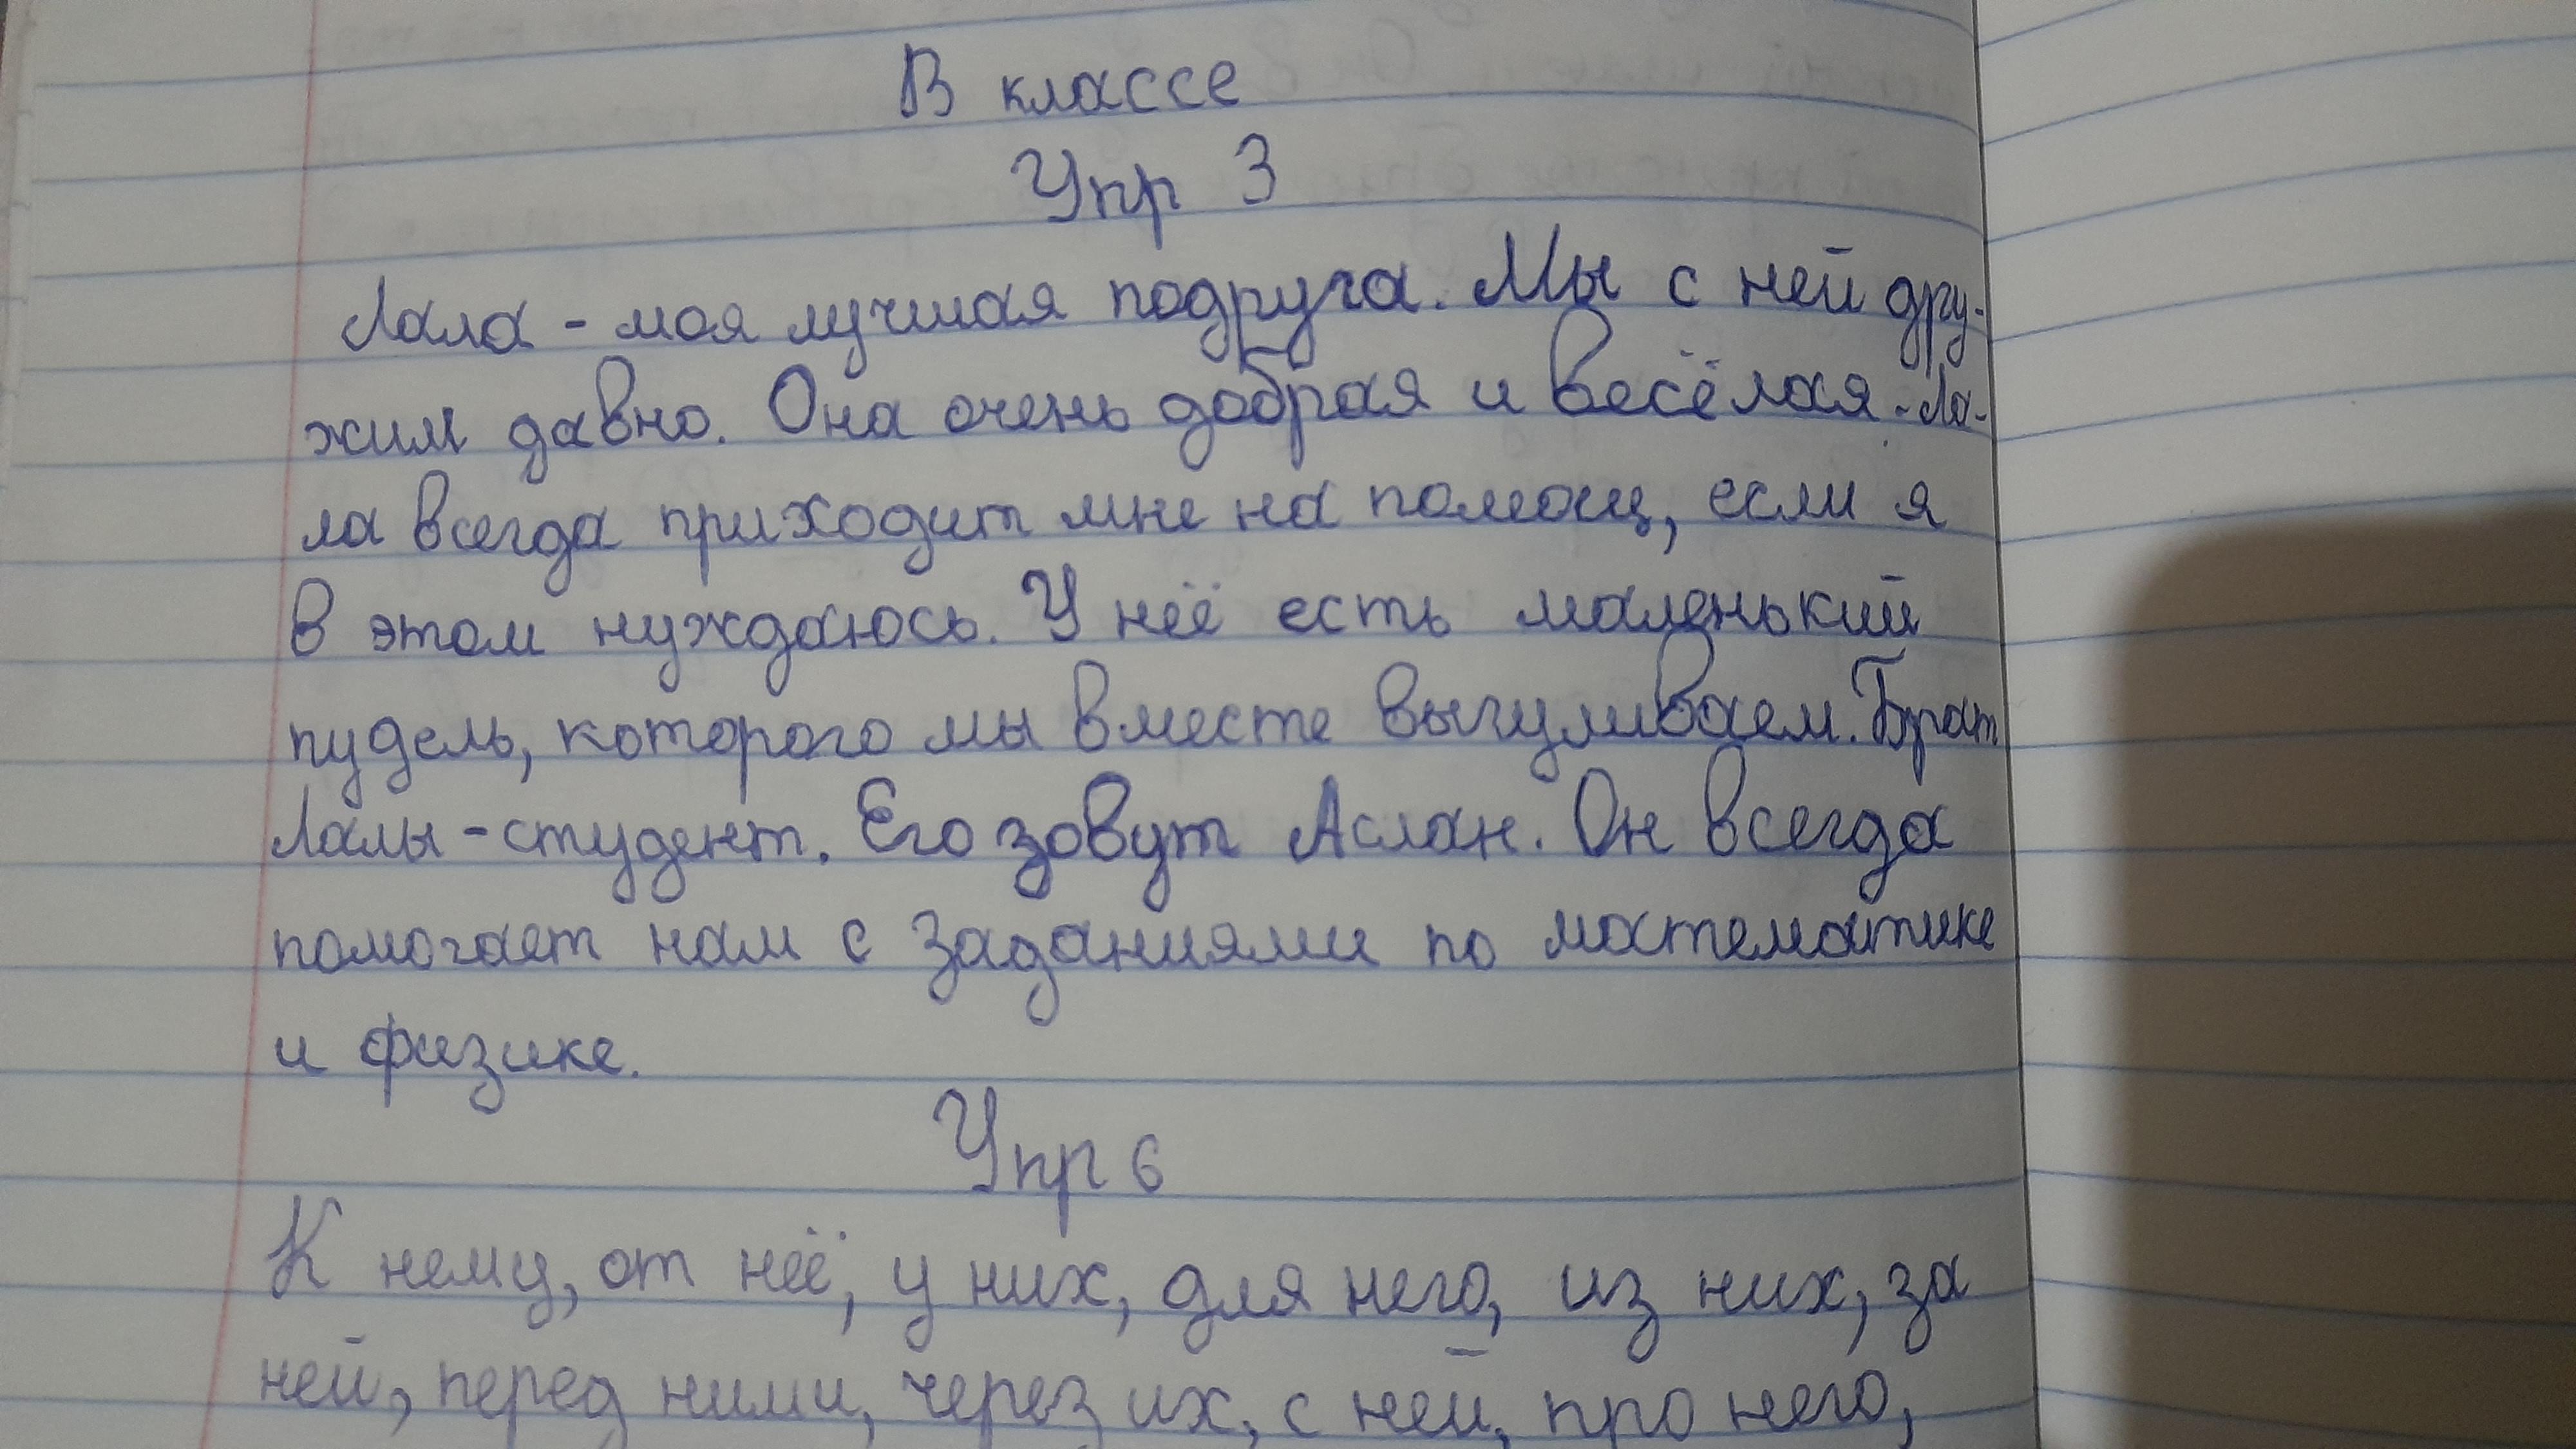 В классе
Упр 3
Лала - моя лучшая подруга. Мы с ней дру-
жим давно. Она очень добрая и весёлая. Ла-
ла всегда приходит мне на помощ, если я
в этом нуждаюсь. У неё есть маленький
пудель, которого мы вместе выгуливаем. Брат
Лалы - студент. Его зовут Аслан. Он всегда
помогает нам с заданиями по математике
и физике.
Упр 6
К нему, от неё, у них, для него, из них, за
ней, перед ними, через их, с ней, про него,